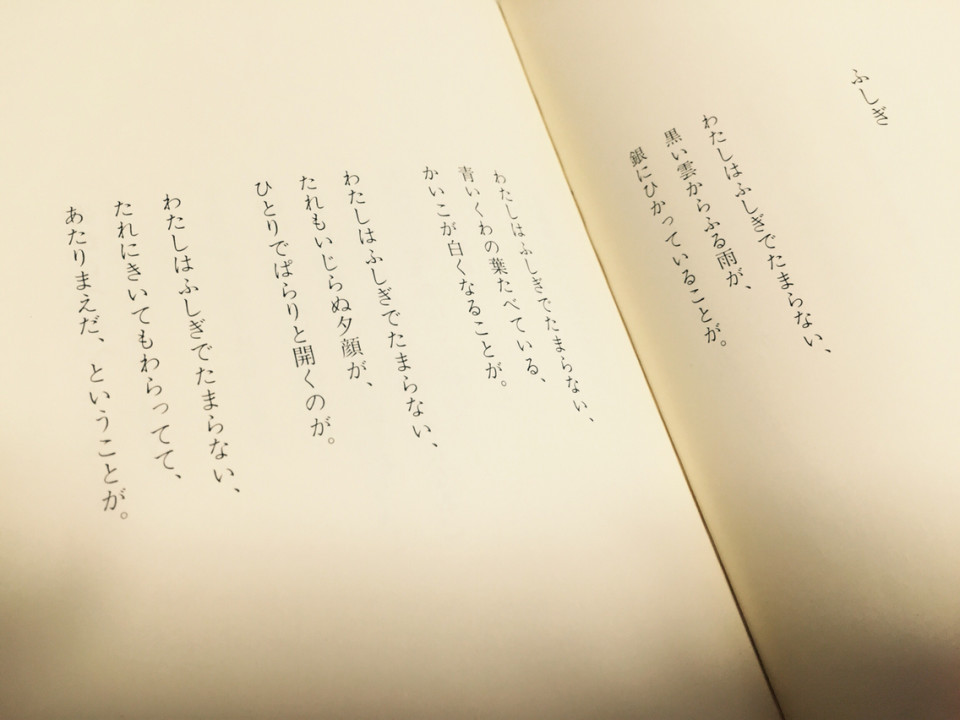 ふしぎ
わたしはふしぎでたまらない、
黒い雲からふる雨が、
銀にひかっていることが。
わたしはふしぎでたまらない、
青いくわの葉たべている、
かいこが白くなることが。
わたしはふしぎでたまらない、
たれもいじらぬ夕顔が、
ひとりでぱらりと開くのが。
わたしはふしぎでたまらない、
たれにきいてもわらってて、
あたりまえだ、ということが。